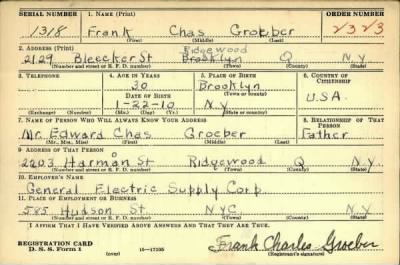 SERIAL NUMBER 1. NAME (Print) ORDER NUMBER
1318 Frank Chas Groeber 2323
(First) (Middle) (Last)
2. ADDRESS (Print) Ridgewood
2129 Bleecker St Brooklyn Q N.Y.
(Number and street or R. F. D. number) (Town) (County) (State)
3. TELEPHONE 4. AGE IN YEARS 5. PLACE OF BIRTH 6. COUNTRY OF CITIZENSHIP
30 Brooklyn
(Town or county)
DATE OF BIRTH U.S.A.
1-22-10 N.Y.
(Exchange) (No.) (Mo.) (Day) (Yr.) (State or country)
7. NAME OF PERSON WHO WILL ALWAYS KNOW YOUR ADDRESS 8. RELATIONSHIP OF THAT PERSON
Mr. Edward Chas Groeber Father
(Mr., Mrs., Miss) (First) (Middle) (Last)
9. ADDRESS OF THAT PERSON
2203 Harman St Ridgewood Q N.Y.
(Number and street or R. F. D. number) (Town) (County) (State)
10. EMPLOYER'S NAME
General Electric Supply Corp.
11. PLACE OF EMPLOYMENT OR BUSINESS
585 Hudson St NYC. N.Y.
(Number and street or R. F. D. number) (Town) (County) (State)
I AFFIRM THAT I HAVE VERIFIED ABOVE ANSWERS AND THAT THEY ARE TRUE.
REGISTRATION CARD
D. S. S. Form 1 (over) 16—17105 Frank Charles Groeber
(Registrant's signature)